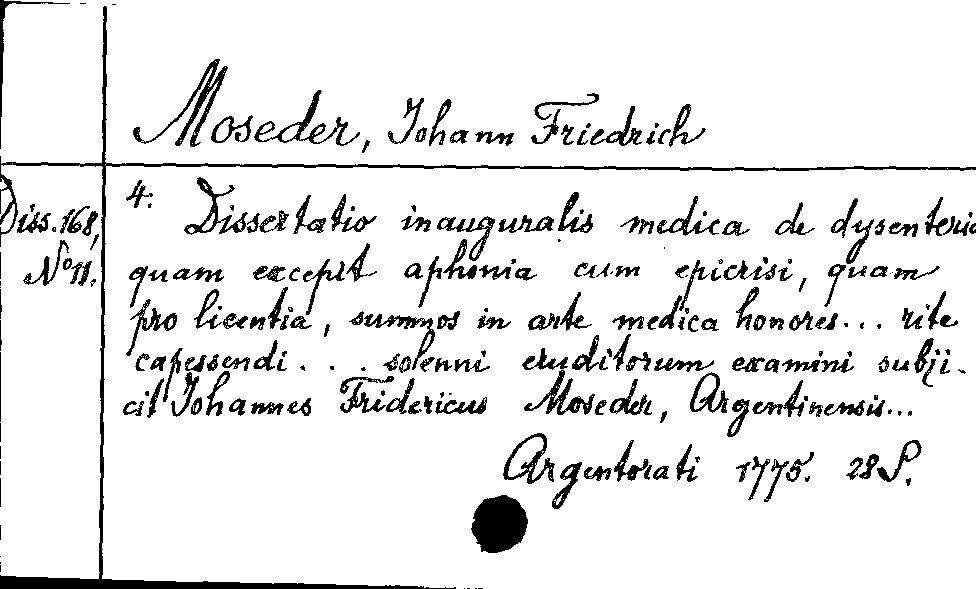 Moseder, Johann Friedrich
Diss. 168, No 11.
4: Dissertatio inauguralis medica de dysenteria
quam excepit aphonia cum epicrisi, quam
pro licentia, summos in arte medica honores... rite
capessendi . . . solenni eruditorum examini subji-
cit Johannes Fridericus Moseder, Argentinensis...
Argentorati 1775. 28 S.